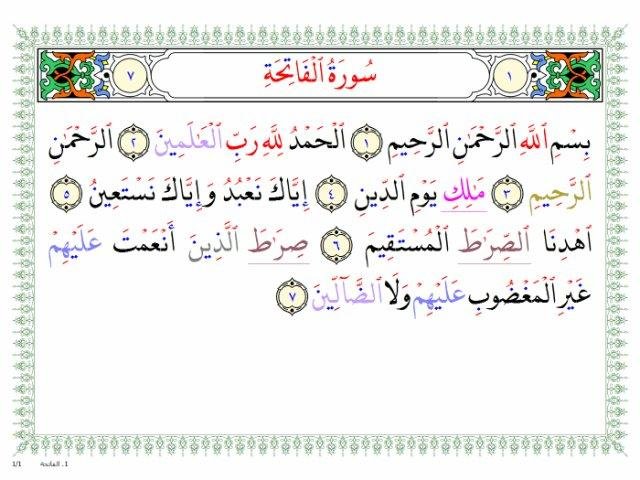 ٧ سُورَةُ ٱلْفَاتِحَةِ ١
بِسْمِ ٱللَّهِ ٱلرَّحْمَٰنِ ٱلرَّحِيمِ ١ ٱلْحَمْدُ لِلَّهِ رَبِّ ٱلْعَٰلَمِينَ ٢ ٱلرَّحْمَٰنِ
ٱلرَّحِيمِ ٣ مَٰلِكِ يَوْمِ ٱلدِّينِ ٤ إِيَّاكَ نَعْبُدُ وَإِيَّاكَ نَسْتَعِينُ ٥
ٱهْدِنَا ٱلصِّرَٰطَ ٱلْمُسْتَقِيمَ ٦ صِرَٰطَ ٱلَّذِينَ أَنْعَمْتَ عَلَيْهِمْ
غَيْرِ ٱلْمَغْضُوبِ عَلَيْهِمْ وَلَا ٱلضَّآلِّينَ ٧
1/1 1. الفاتحة